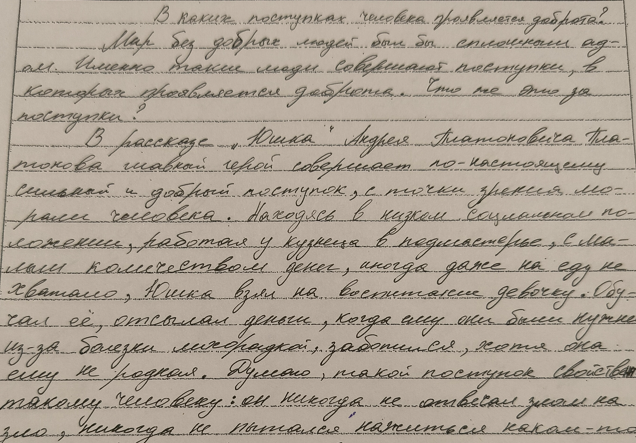 В каких поступках человека проявляется доброта?
Мир без добрых людей был бы сплошным ад-
ом. Именно такие люди совершают поступки, в
которых проявляется доброта. Что же это за
поступки?
В рассказе „Юшка" Андрея Платоновича Пла-
тонова главный герой совершает по-настоящему
сильный и добрый поступок, с точки зрения мо-
рали человека. Находясь в низком социальном по-
ложении, работая у кузнеца в подмастерье, с ма-
лым количеством денег, иногда даже на еду не
хватало, Юшка взял на воспитание девочку. Обу-
чал её, отсылал деньги, когда ему они были нужны
из-за болезни лихорадкой, заботился, хотя она
ему не родная. Думаю, такой поступок свойствен
такому человеку: он никогда не отвечал злом на
зло, никогда не пытался нажиться на каком-то